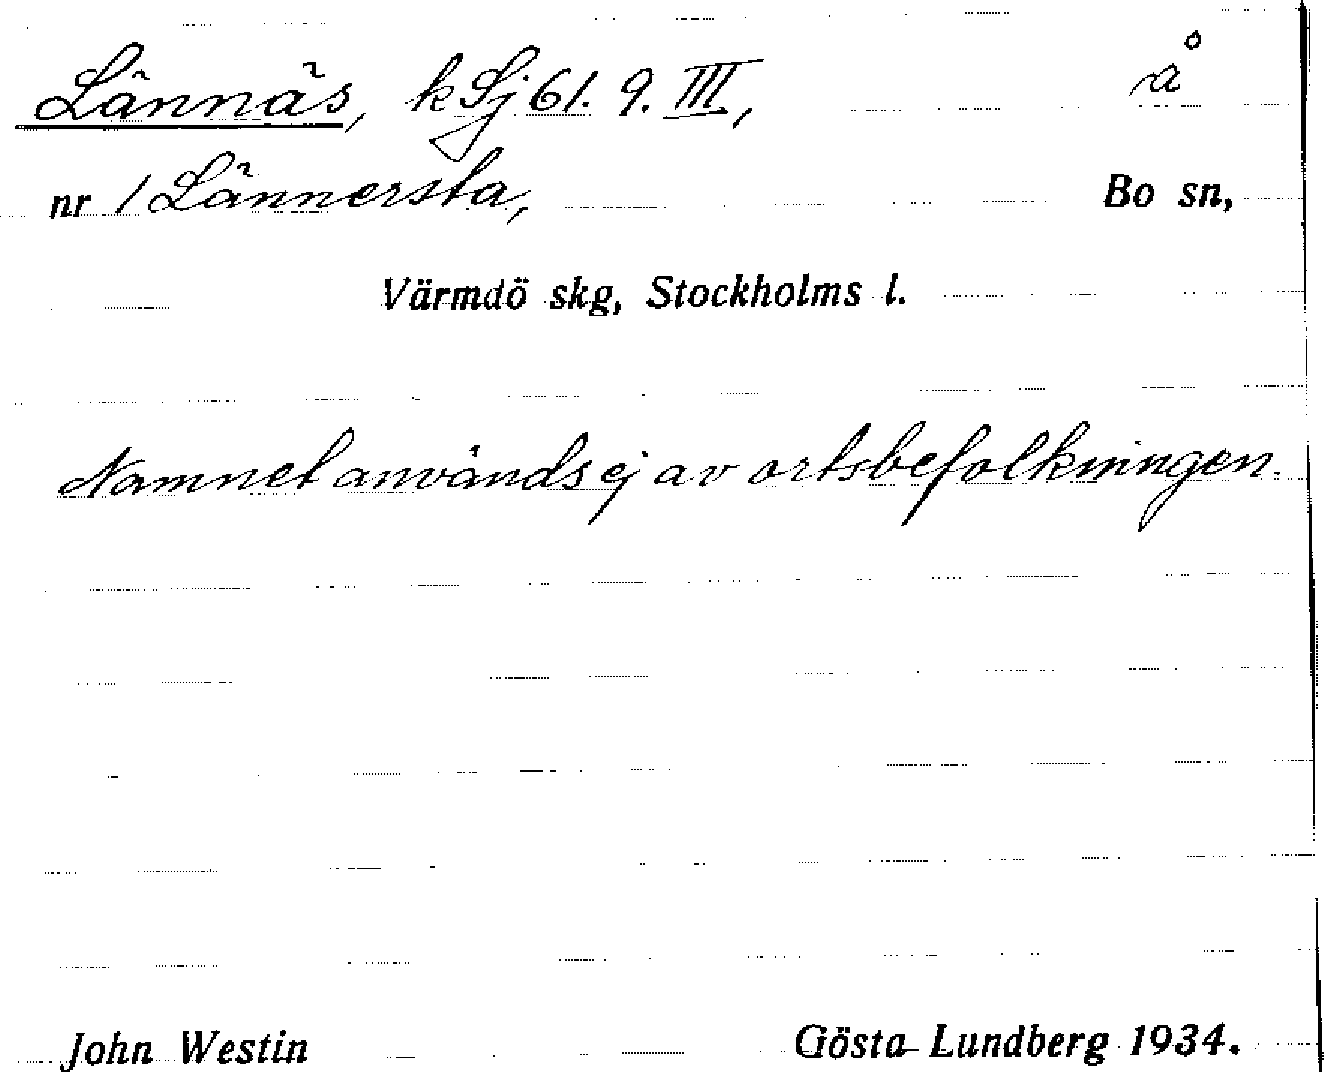 Lännäs, kSj 61. 9. III, å
nr 1 Lännersta, Bo sn,
Värmdö skg, Stockholms l.
Namnet används ej av ortsbefolkningen.
John Westin Gösta Lundberg 1934.